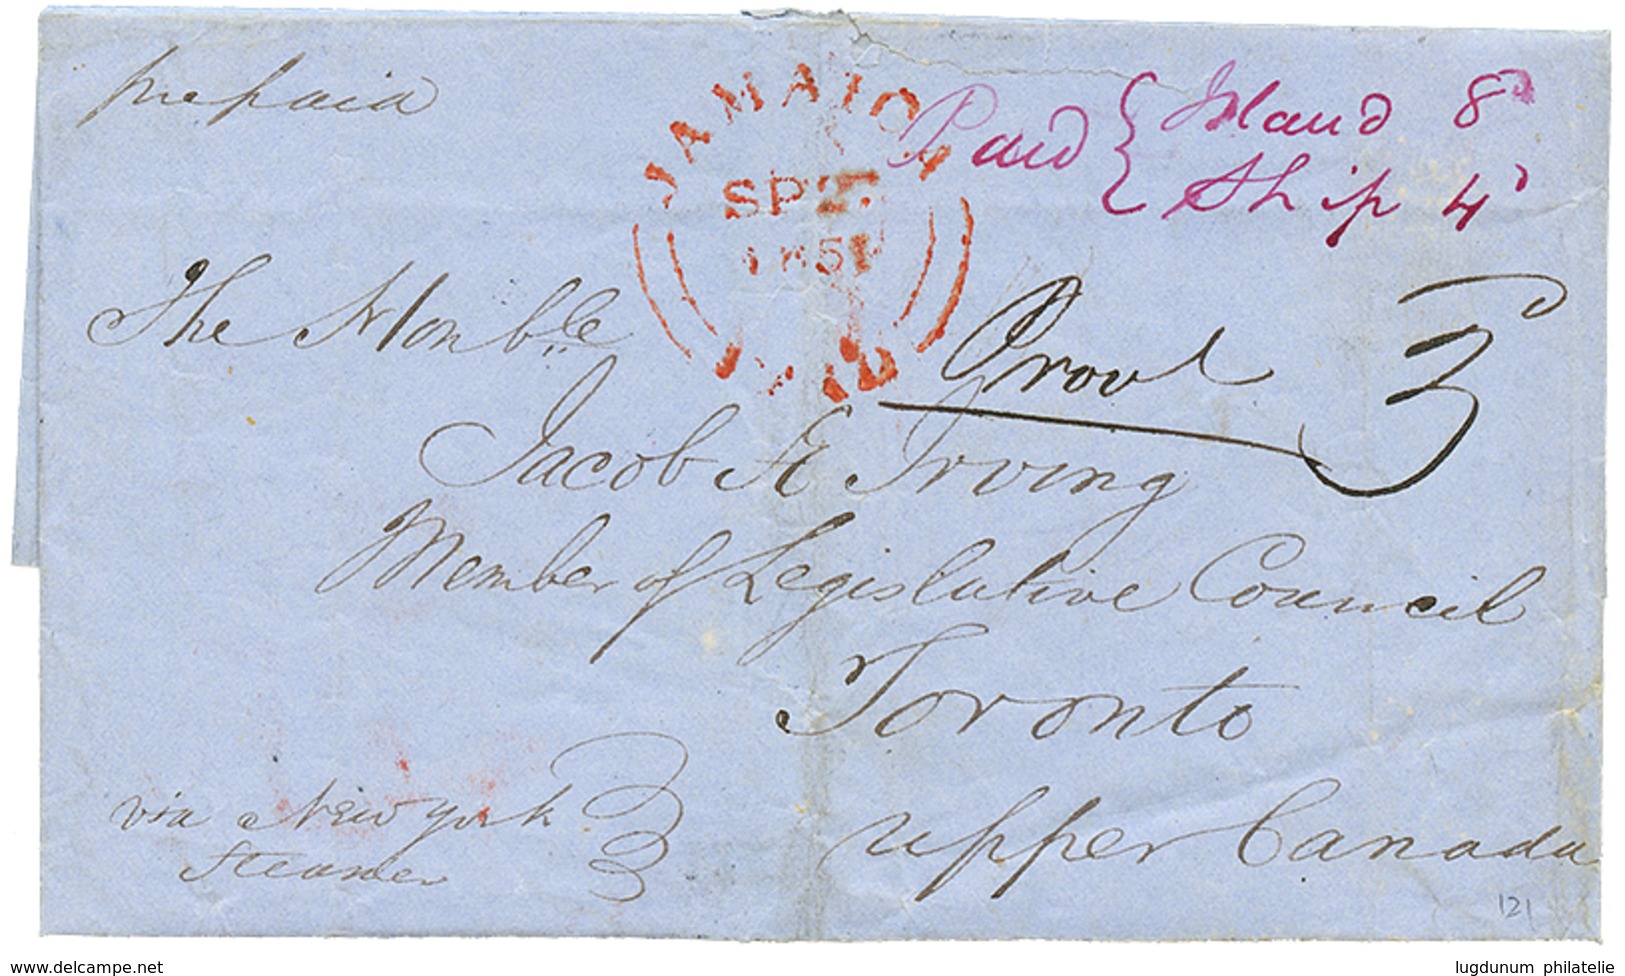 prepaid
JAMAICA
SP 27
1851
PAID
Paid { Island 8d
Ship 4d
The Honble
Provl 3d
Jacob Æ Irving
Member of Legislative Council
Toronto
via New york
Steamer
upper Canada
121
delcampe.net
lugdunum philatelie